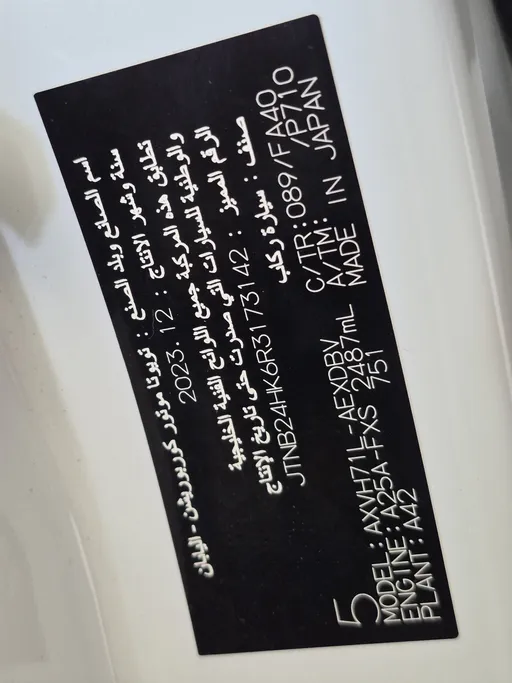 اسم الصانع وبلد الصنع : تويوتا موتور كوربوريشن - اليابان
سنة وشهر الانتاج : 2023.12
تطابق هذه المركبة جميع اللوائح الفنية الخليجية
والوطنية للسيارات التي صدرت حتى تاريخ الإنتاج
الرقم المميز : JTNB24HK6R3173142
صنف : سيارة ركاب
C/TR:089/FA40
A/TM: /P710
MADE IN JAPAN
5
MODEL:AXVH71L-AEXDBV
ENGINE:A25A-FXS 2487mL
PLANT:A42 751